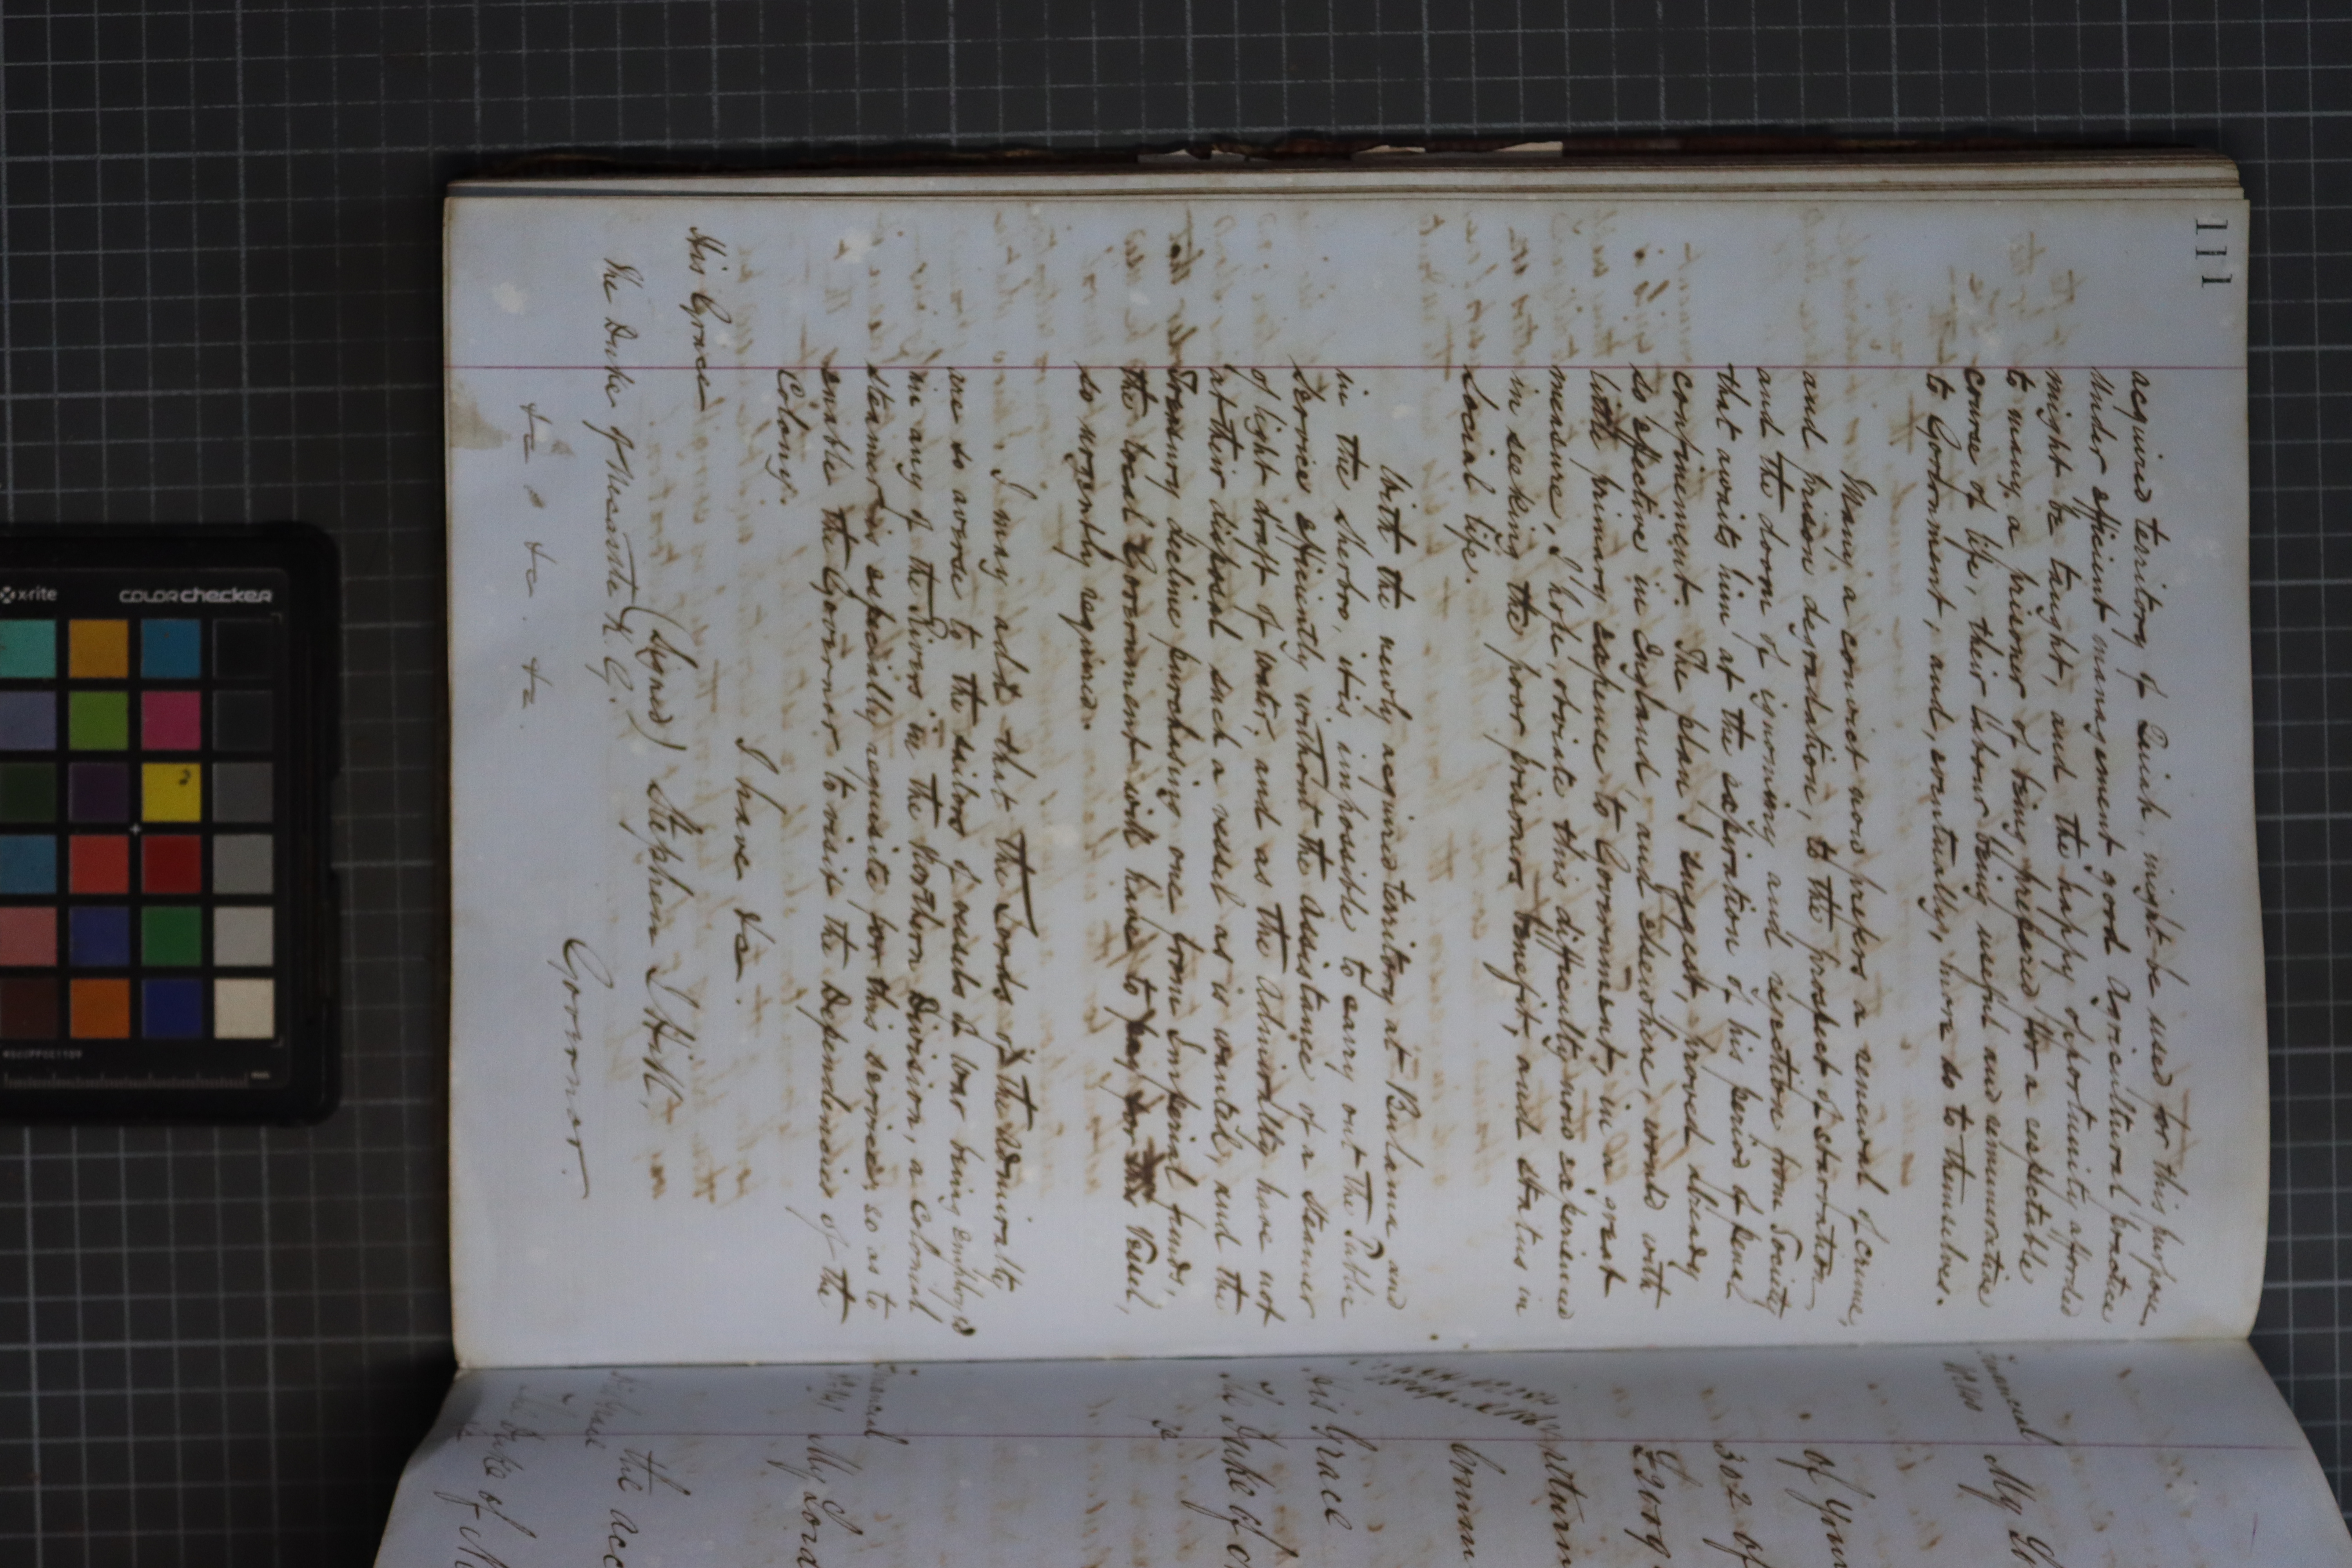 111
acquired territory of Quiah, might be used for this purpose.
Under efficient management good Agricultural practice
might be taught, and the happy opportunity afforded
to many a prisoner of being prepared for a respectable
course of life, their labour being useful and remunerative
to Government, and, eventually, more so to themselves.
Many a convict now prefers a renewal of crime,
and prison degradation, to the prospect of starvation
and the doom of ignominy and rejection from Society
that awaits him at the expiration of his period of penal
confinement. The plan I suggest, proved already
so effective in England, and elsewhere, would with
little primary expense to Government, in a great
measure, I hope, obviate this difficulty now experienced
in seeking the poor prisoners benefit, and status in
Social life.
With the newly acquired territory at Bulama and
in the Sherbro, it is impossible to carry out the Public
Service efficiently without the assistance of a Steamer
of light draft of water, and as the Admiralty have not
at their disposal such a vessel as is wanted, and the
Treasury decline purchasing one from Imperial funds,
the local Government will have to pay for the Vessel,
so urgently required.
I may add that the Lords of the Admiralty
are so averse to the sailing of vessels of war being employed
in any of the Rivers in the Northern Division, a Colonial
steamer is especially requisite for this service, so as to
enable the Governor to visit the Dependencies of the
Colony.
I have &c.
His Grace
(Signed) Stephen J Hill,
The Duke of Newcastle K. G.
Governor.
&c &c &c
Financial
My
of Your
302 of
George
return
His Grace
The Duke of
Financial
My Lord
the acc
The Duke of